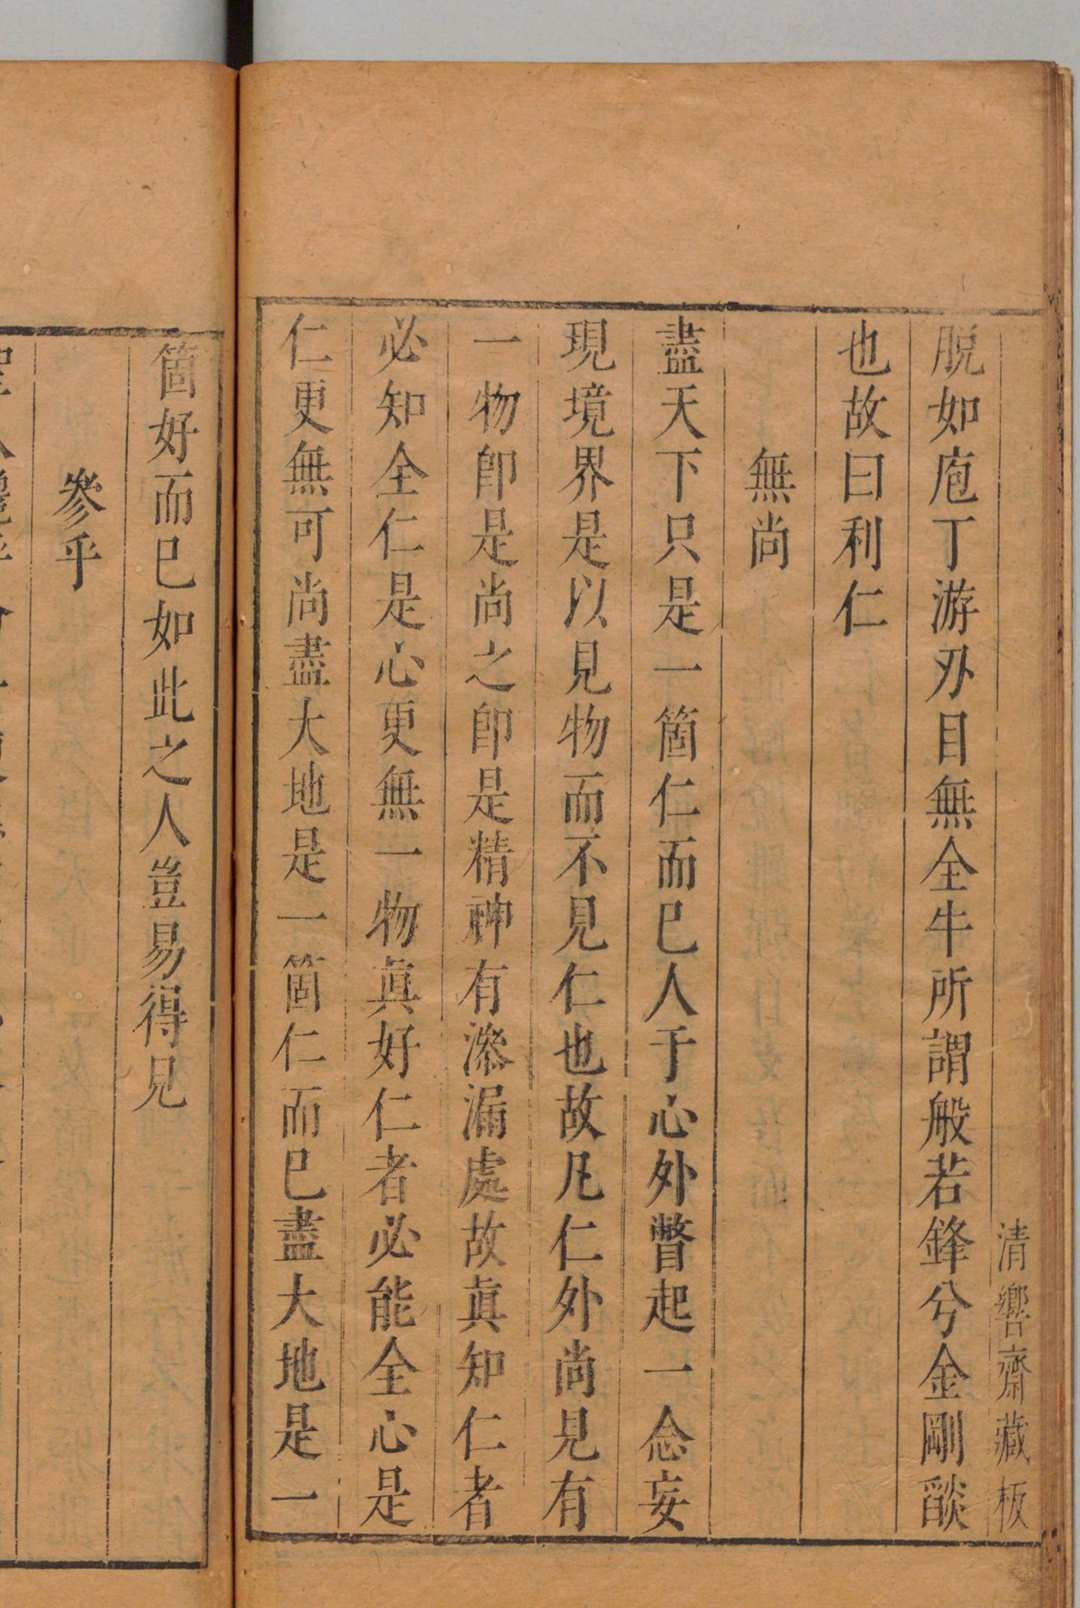 清響齋藏板
脫如庖丁游刃目無全牛所謂般若鋒兮金剛燄
也故曰利仁
無尚
盡天下只是一箇仁而已人于心外瞥起一念妄
現境界是以見物而不見仁也故凡仁外尚見有
一物卽是尚之卽是精神有滲漏處故眞知仁者
必知全仁是心更無一物眞好仁者必能全心是
仁更無可尚盡大地是一箇仁而已盡大地是一
箇好而已如此之人豈易得見
參乎